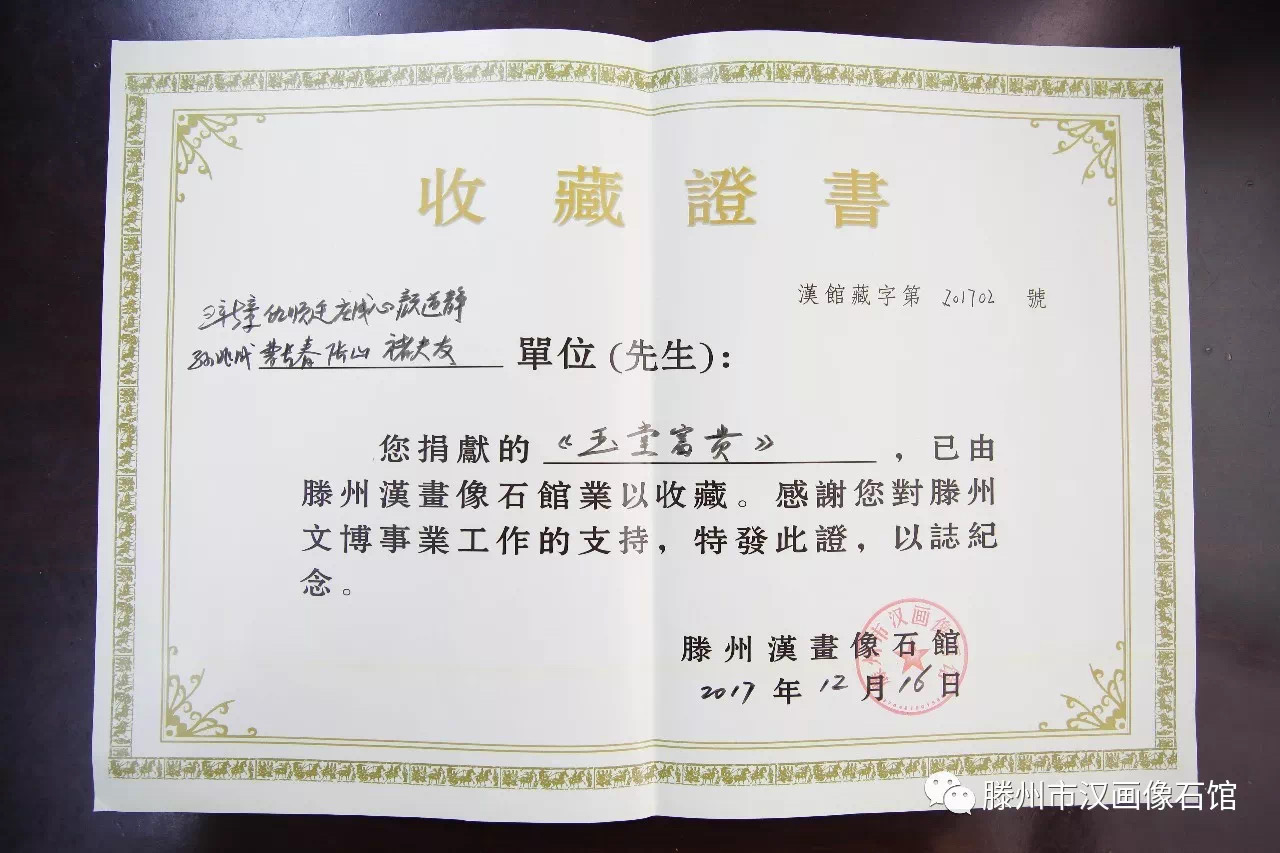 收藏證書
漢館藏字第 201702 號
顏道靜
曹長春 陈山 褚夫友 單位(先生)：
您捐獻的《玉堂富贵》，已由
滕州漢畫像石館業以收藏。感謝您對滕州
文博事業工作的支持，特發此證，以誌紀
念。
滕州漢畫像石館
2017年12月16日
滕州市汉画像石馆